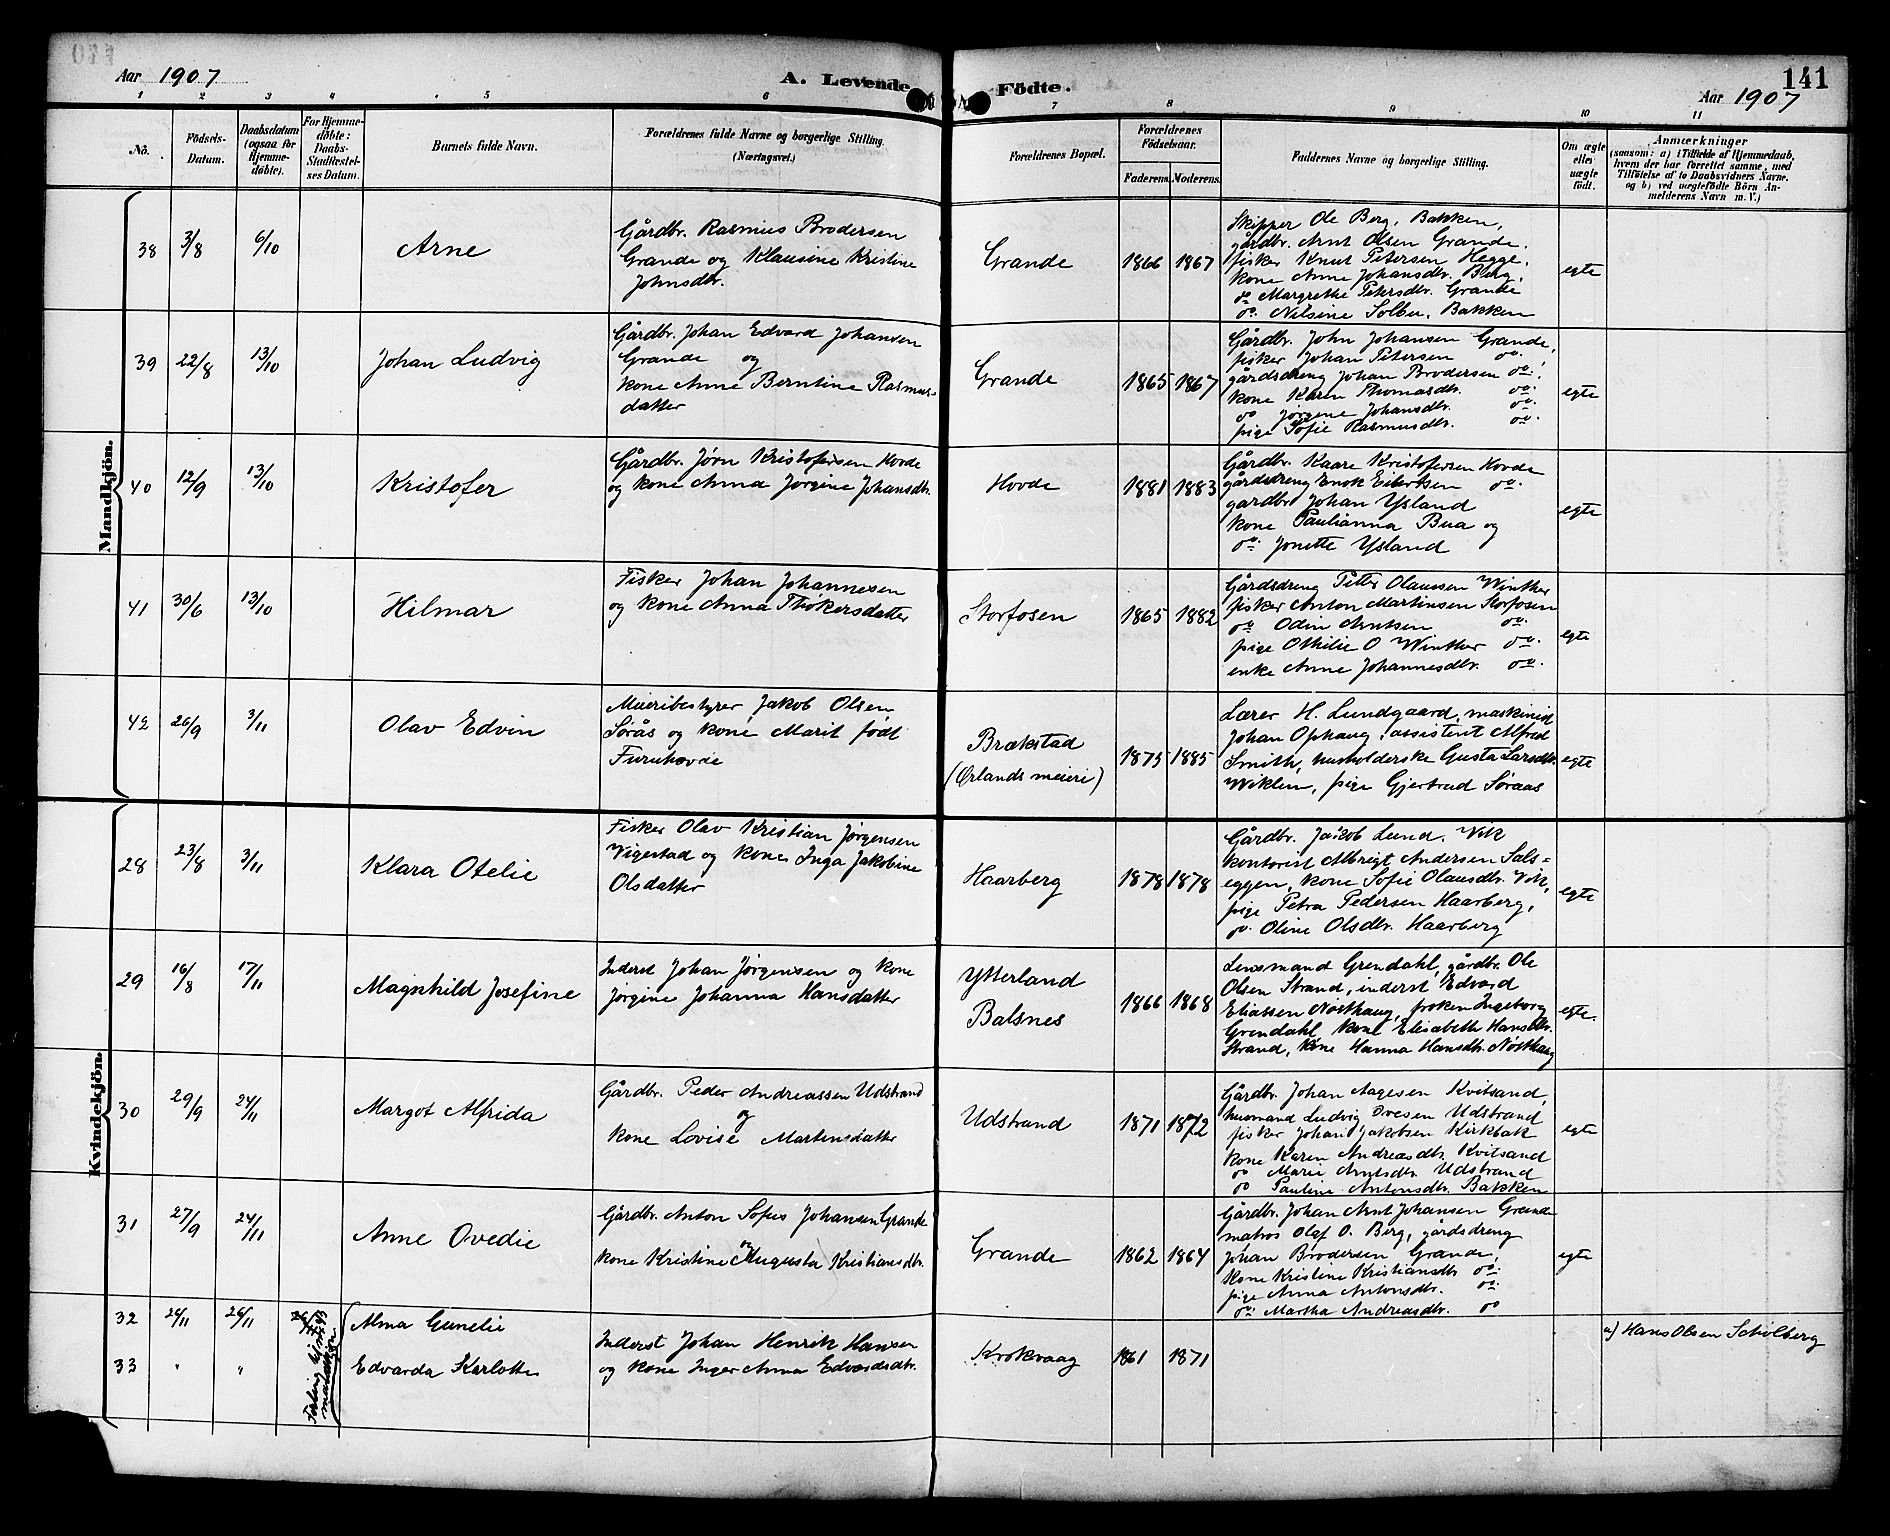 Aar 1907
A. Levende
Födte.
141
Aar 1907
1 2 3 4 5 6 7 8 9 10 11
No.
Födsels-
Datum.
Daabsdatum
(ogsaa för
Hjemme-
döbte).
For Hjemme-
döbte:
Daabs-
Stadfæstel-
ses Datum.
Barnets fulde Navn.
Forældrenes fulde Navne og borgerlige Stilling.
(Næringsvei.)
Forældrenes Bopæl.
Forældrenes
Födselsaar.
Faderens.
Moderens.
Faddernes Navne og borgerlige Stilling.
Om ægte
eller
uægte
födt.
Anmærkninger
(saasom: a) i Tilfælde af Hjemmedaab,
hvem der har forrettet samme, med
Tilföielse af to Daabsvidners Navne.
og b) ved uægtefödte Börn An-
melderens Navn m. V.)
Mandkjön.
38 3/8 6/10
Arne
Gårdbr. Rasmus Brodersen
Grande og Klausine Kristine
Johnsdtr.
Grande
1866 1867
Skipper Ole Berg, Bakken,
gårdbr. Arnt Olsen Grande.
fisker Knut Petersen Hegge,
kone Anne Johansdtr. Berg,
do Margrethe Petersdtr. Grande
do. Nilsine Solbu, Bakken
egte
39 22/8 13/10
Johan Ludvig
Gårdbr. Johan Edvard Johansen
Grande og
kone Anne Berntine Rasmus-
datter
Grande
1865 1867
Gårdbr. John Johansen Grande,
fisker Johan Petersen do.
gårdsdreng Johan Brodersen do.
kone Karen Thomasdtr. do.
do Jørgine Johansdtr. do.
pige Sofie Rasmusdtr. do.
egte
40 12/9 13/10
Kristofer
Gårdbr. Jørn Kristofersen Hovde
og kone Anna Jørgine Johansdtr.
Hovde
1881 1883
Gårdbr. Kaare Kristofersen Hovde
gårdsdreng Enok Eilertsen do.
gardbr. Johan Ysland
kone Paulianna Bua og
do. Jonette Ysland
egte
41 30/6 13/10
Hilmar
Fisker Johan Johannesen
og kone Anna Thokersdatter
Storfosen
1865 1882
Gårdsdreng Petter Olaussen Winther
fisker Anton Martinsen Storfosen
do Odin Arntsen do.
pige Othilie O Winther do.
enke Anne Johannesdtr. do.
egte
42 26/9 3/11
Olav Edvin
Meieribestyrer Jakob Olsen
Sørås og kone Marit født
Furuhovde
Brækstad
(Ørlands meieri)
1875 1885
Lærer H. Lundgaard, maskinist
Johan Ophaug, assistent Alfred
Smith, husholderske Gusta Larsdtr.
Wiklen, pige Gjertrud Søraas
egte
Kvindekjön.
28 23/8 3/11
Klara Otelie
Fisker Olav Kristian Jørgensen
Vigestad og kone Inga Jakobine
Olsdatter
Haarberg
1878 1878
Gårdbr. Jakob Lund, Vik
kontorist Albrigt Andersen Sals=
eggen, kone Sofie Olausdtr. Vik,
pige Petra Pedersen Haarberg,
do. Oline Olsdtr. Haarberg
egte
29 16/8 17/11
Magnhild Josefine
Inderst Johan Jørgensen og kone
Jørgine Johanna Hansdatter
Ytterland
Balsnes
1866 1868
Lensmand Grendahl, gårdbr. Ole
Olsen Strand, inderst Edvard
Eliassen Nøsthaug, frøken Ingeborg
Grendahl kone Elisabeth Hansdtr.
Strand, kone Hanna Hansdtr. Nøsthaug
egte.
30 29/9 24/11
Margot Alfrida
Gårdbr. Peder Andreassen Udstrand
og
kone Lovise Martensdatter
Udstrand
1871 1872
Gårdbr. Johan Aagesen Kvitsand,
husmand Ludvig Ovesen Udstrand
fisker Johan Jakobsen Kirkbak
kone Karen Andreasdtr. Kvitsand
do Marie Arntsdtr. Udstrand
do Pauline Antonsdtr. Bakken
egte
31 27/9 24/11
Anne Ovedie
Gårdbr. Anton Sofus Johansen Grande
og
kone Kristine Augusta Kristiansdtr.
Grande
1862 1864
Gårdbr. Johan Arnt Johansen Grande
matros Olaf O. Berg, gårdsdreng
Johan Brodersen Grande,
kone Kristine Kristiansdtr do.
pige Anna Antonsdtr. do.
do. Martha Andreasdtr. do
egte
32 24/11 26/11
Alma Gunelie
33 " "
Edvarda Karlotte
Inderst Johan Henrik Hansen
og kone Inger Anna Edvardsdtr.
Krokvaag
1861 1871
a) Hans Olsen Schölberg